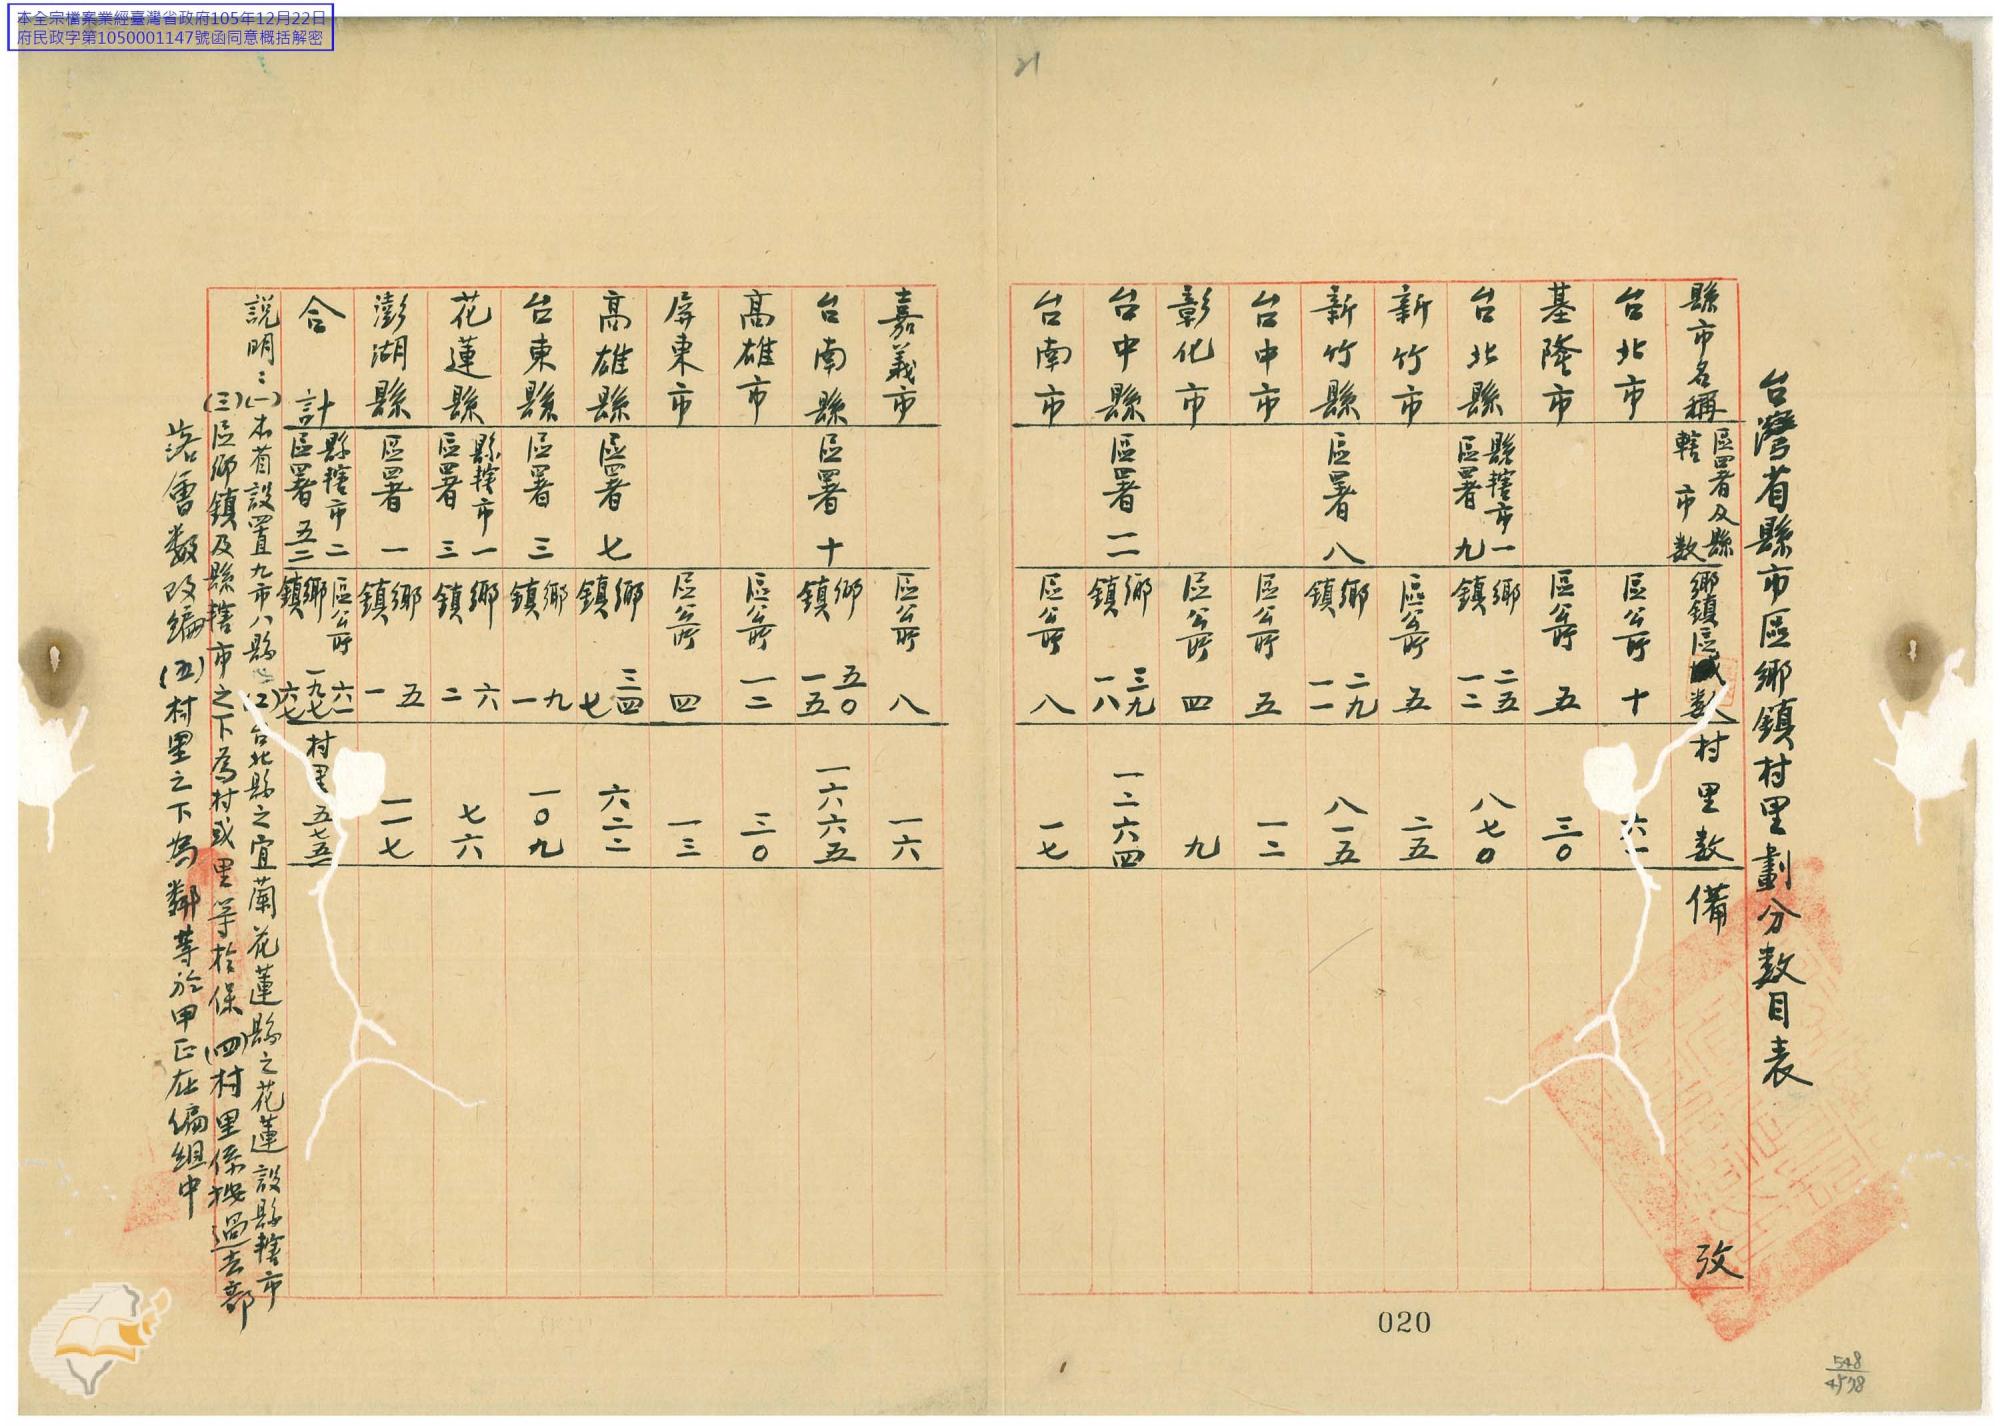 本全宗檔案業經臺灣省政府105年12月22日
府民政字第1050001147號函同意概括解密
台灣省縣市區鄉鎮村里劃分數目表
縣市名稱 區署及縣轄市數 鄉鎮區數 村里數 備攷
台北市 區公所 十 六一
基隆市 區公所 五 三〇
台北縣 縣轄市一 區署九 鄉二五 鎮一二 八七〇
新竹市 區公所 五 二五
新竹縣 區署八 鄉二九 鎮一一 八一五
台中市 區公所 五 一二
彰化市 區公所 四 九
台中縣 區署一一 鄉三九 鎮一八 一二六四
台南市 區公所 八 一七
嘉義市 區公所 八 一六
台南縣 區署十 鄉五〇 鎮一五 一六六五
高雄市 區公所 一二 三〇
屏東市 區公所 四 一三
高雄縣 區署七 鄉三四 鎮七 六二二
台東縣 區署三 鄉九 鎮一 一〇九
花蓮縣 縣轄市一 區署三 鄉六 鎮二 七六
澎湖縣 區署一 鄉五 鎮一 一一七
合計 縣轄市二 區署五二 區公所六一 鄉一九七 鎮六七 村里五七五一
說明：(一)本省設置九市八縣 (二)台北縣之宜蘭花蓮縣之花蓮設縣轄市
(三)區鄉鎮及縣轄市之下為村或里等於保 (四)村里係按過去部
落會數改編 (五)村里之下為鄰等於甲正在編組中
020
21
548
4578